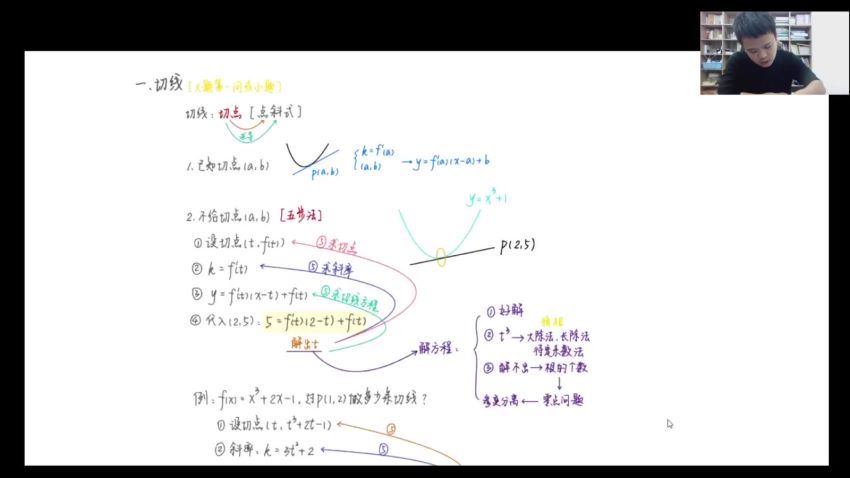 一、切线 [大题第一问或小题]
切线：切点 [点斜式]
求导
1.已知切点(a,b)
p(a,b)
k=f'(a)
(a,b)
→y=f'(a)(x-a)+b
y=x³+1
2.不给切点(a,b) [五步法]
p(2,5)
①设切点(t,f(t)) ⑤求切点
②k=f'(t) ⑤求斜率
③y=f'(t)(x-t)+f(t) ⑤求切线方程
④代入(2,5)：5=f'(t)(2-t)+f(t)
解出t
解方程：
①好解
②t³→大除法、长除法
待定系数法
③解不出→根的个数
↓
参变分离←零点问题
例：f(x)=x³+2x-1，过P(1,2)做多少条切线？
①设切点(t,t³+2t-1) ⑤
②斜率：k=3t²+2 ⑤